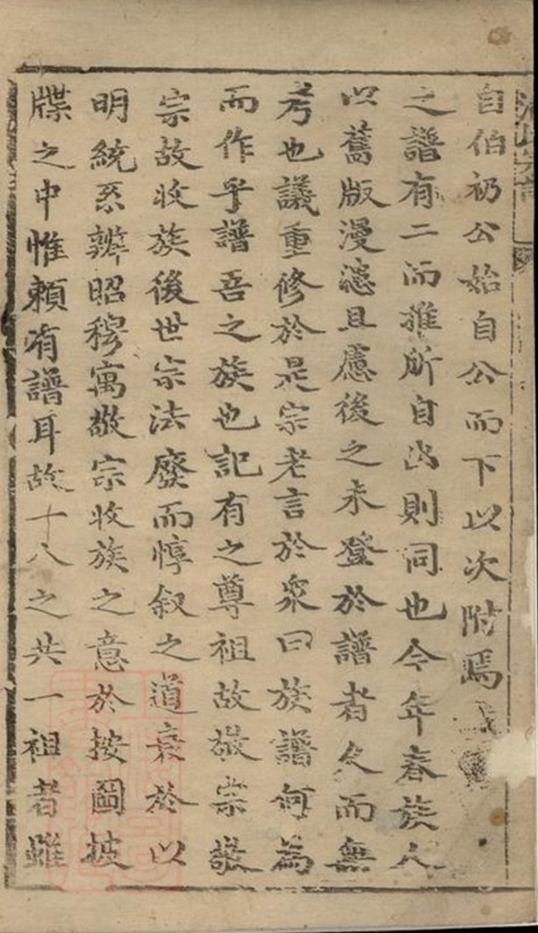 自伯礽公始自公而下以次附焉
之譜有二而推所自出則同也今年春族人
以舊版漫漶且慮後之未登於譜者久而無
考也議重修於是宗老言於衆曰族譜何為
而作乎譜吾之族也記有之尊祖故敬宗敬
宗故收族後世宗法廢而惇叙之道衰於以
明統系辨昭穆寓敬宗收族之意於按圖披
牒之中惟賴有譜耳故十八之共一祖者雖